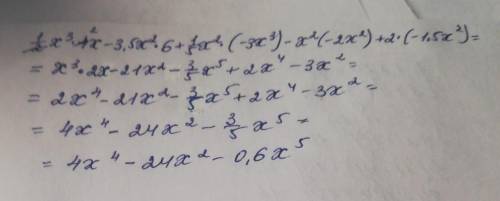 ½x³·4x² - 3,5x²·6 + ⅕x²·(-3x³) - x²(-2x²) + 2·(-1,5x²) =
= x³·2x - 21x² - 3/5 x⁵ + 2x⁴ - 3x² =
= 2x⁴ - 21x² - 3/5 x⁵ + 2x⁴ - 3x² =
= 4x⁴ - 24x² - 3/5 x⁵ =
= 4x⁴ - 24x² - 0,6x⁵